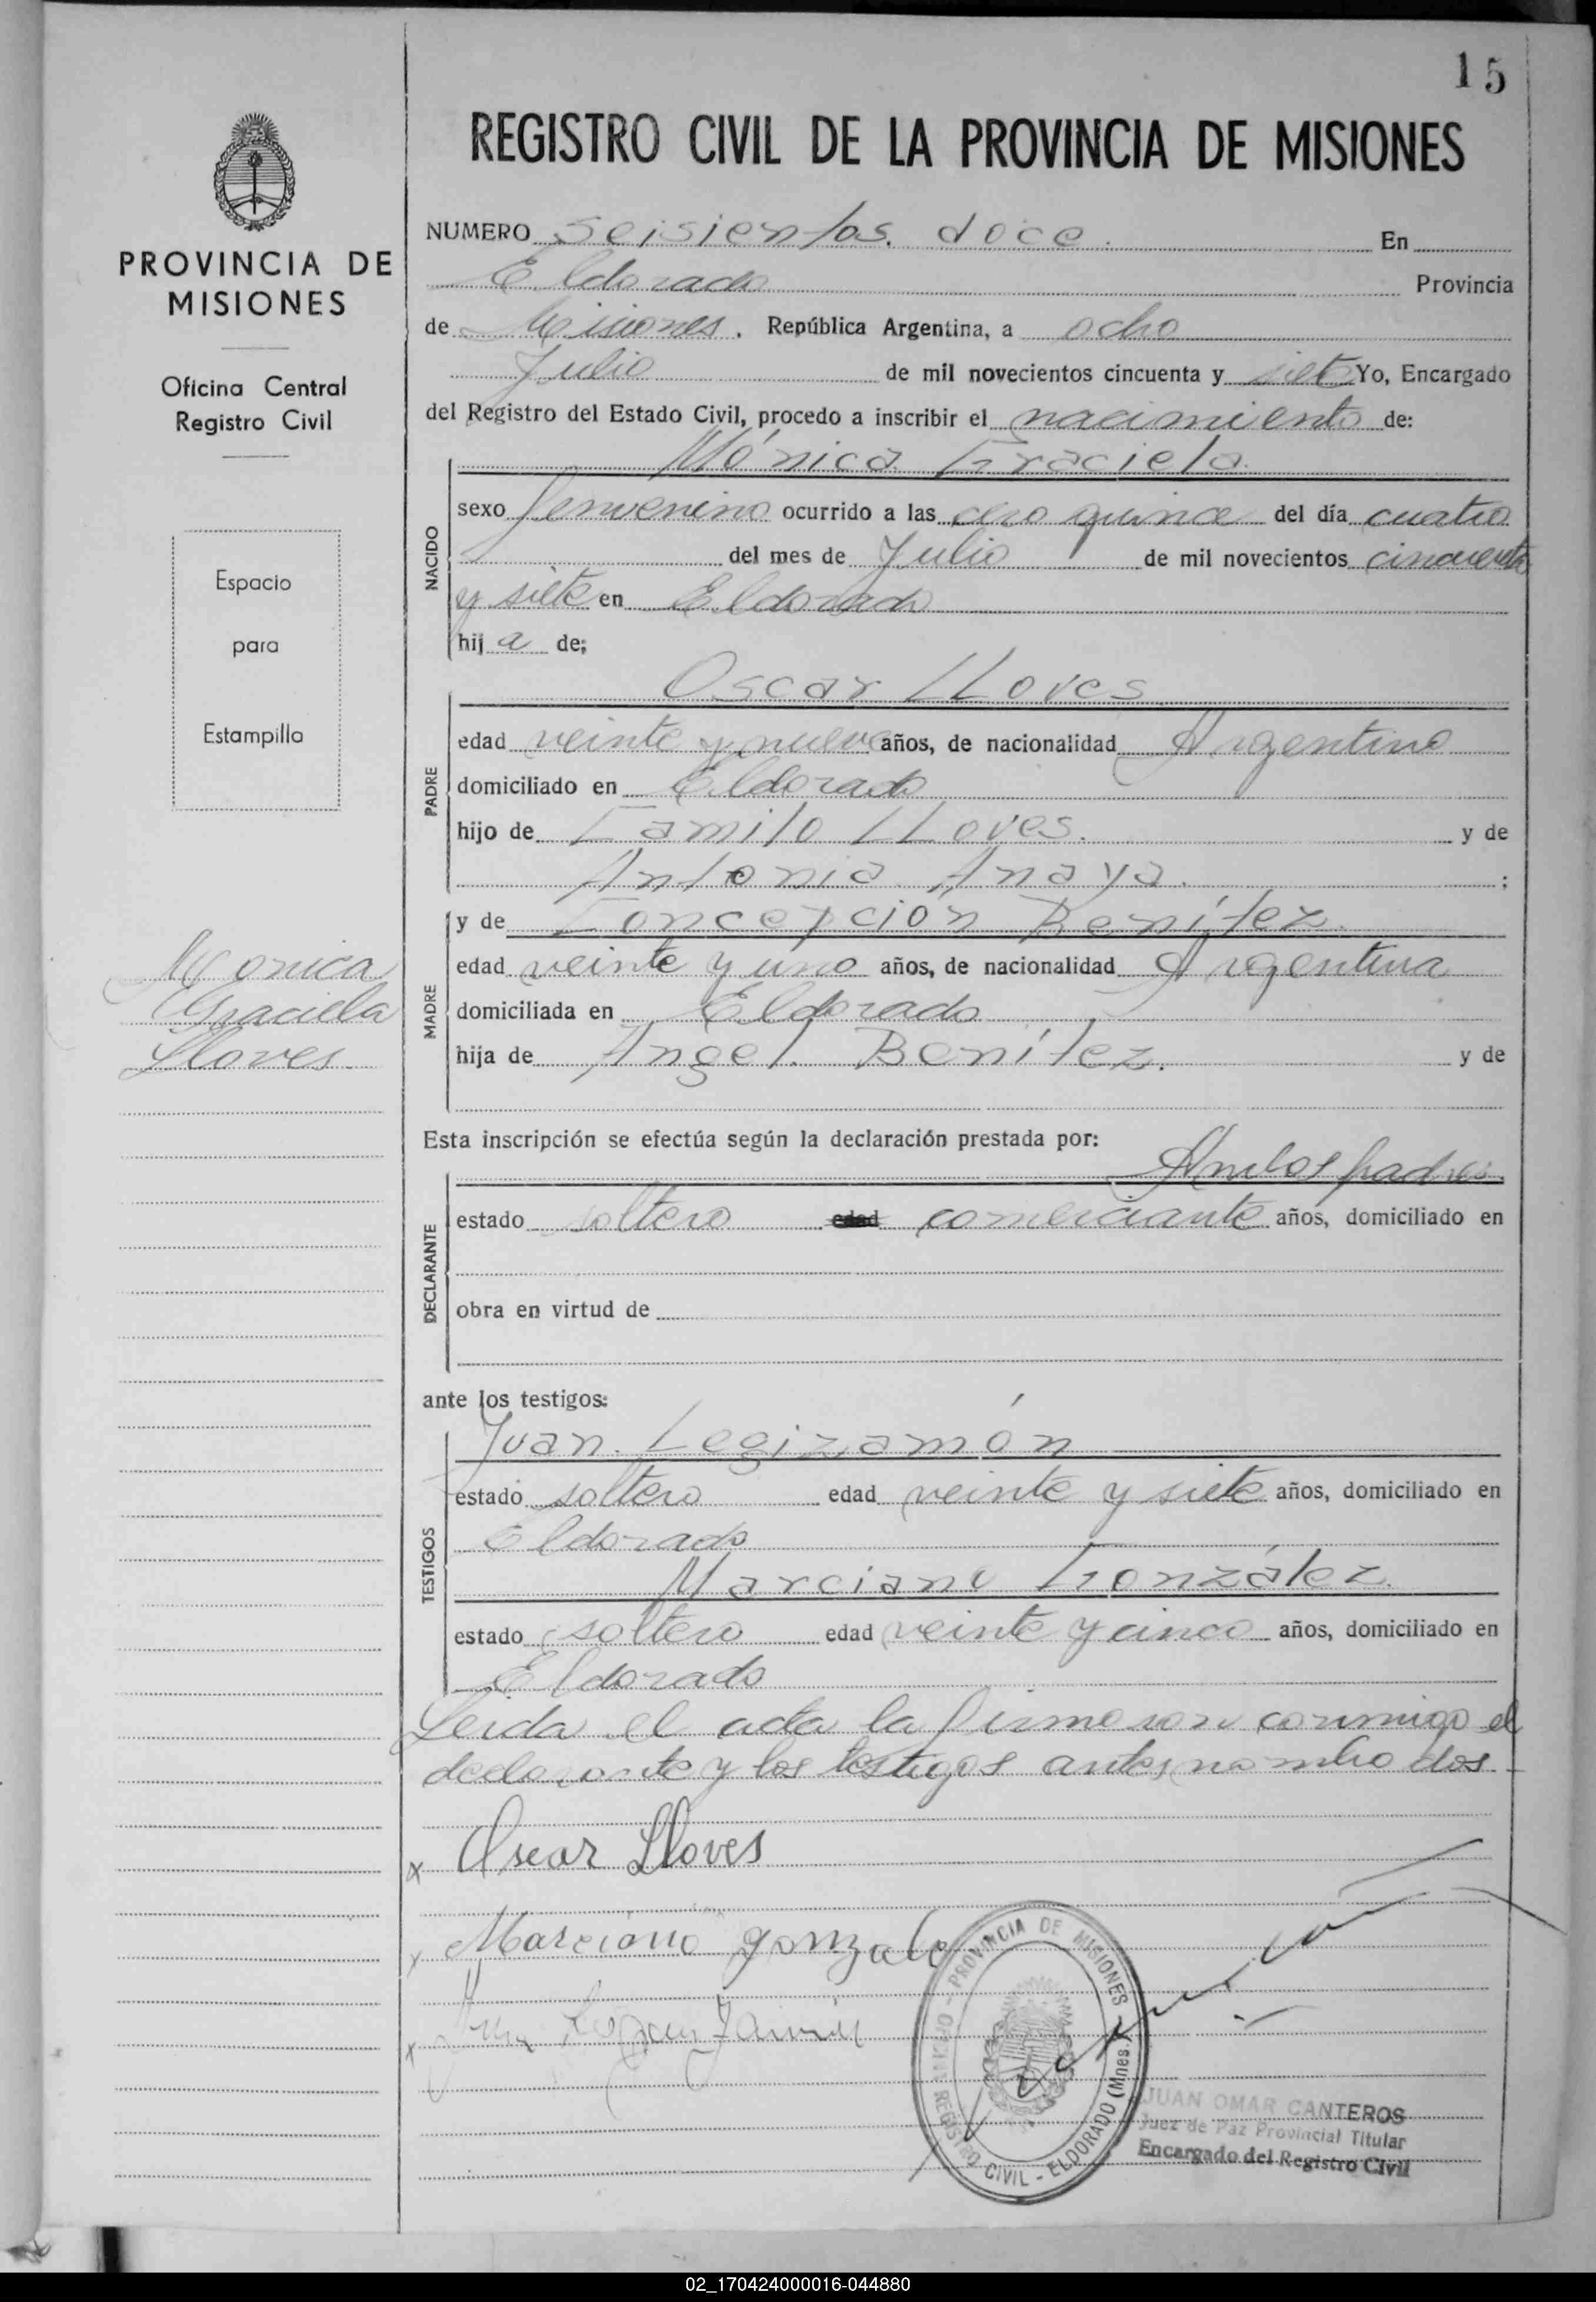 15
REGISTRO CIVIL DE LA PROVINCIA DE MISIONES
PROVINCIA DE
MISIONES
Oficina Central
Registro Civil
Espacio
para
Estampilla
Monica
Graciela
Lloves
NUMERO Seisientos doce. En
Eldorado Provincia
de Misiones. República Argentina, a ocho
Julio de mil novecientos cincuenta y siete Yo, Encargado
del Registro del Estado Civil, procedo a inscribir el nacimiento de:
Mónica Graciela
NACIDO
sexo femenino ocurrido a las cero quince del día cuatro
del mes de Julio de mil novecientos cincuenta
y siete en Eldorado
hij a de;
Oscar LLoves
PADRE
edad veinte y nueve años, de nacionalidad Argentino
domiciliado en Eldorado
hijo de Camilo LLoves. y de
Antonia Anaya. ;
y de Concepción Benítez.
MADRE
edad veinte y uno años, de nacionalidad Argentina
domiciliada en Eldorado
hija de Angel Benítez. y de
Esta inscripción se efectúa según la declaración prestada por:
Ambos padres
DECLARANTE
estado soltero edad comerciante años, domiciliado en
obra en virtud de
ante los testigos:
Juan Legizamón
TESTIGOS
estado soltero edad veinte y siete años, domiciliado en
Eldorado
Marciano González
estado soltero edad veinte y cinco años, domiciliado en
Eldorado
Leida el acta la firmaron conmigo el
declarante y los testigos antes nombrados
x Oscar Lloves
x Marciano gonzale
x
PROVINCIA DE MISIONES
REGISTRO CIVIL - ELDORADO (Mnes.)
JUAN OMAR CANTEROS
Juez de Paz Provincial Titular
Encargado del Registro Civil
02_170424000016-044880